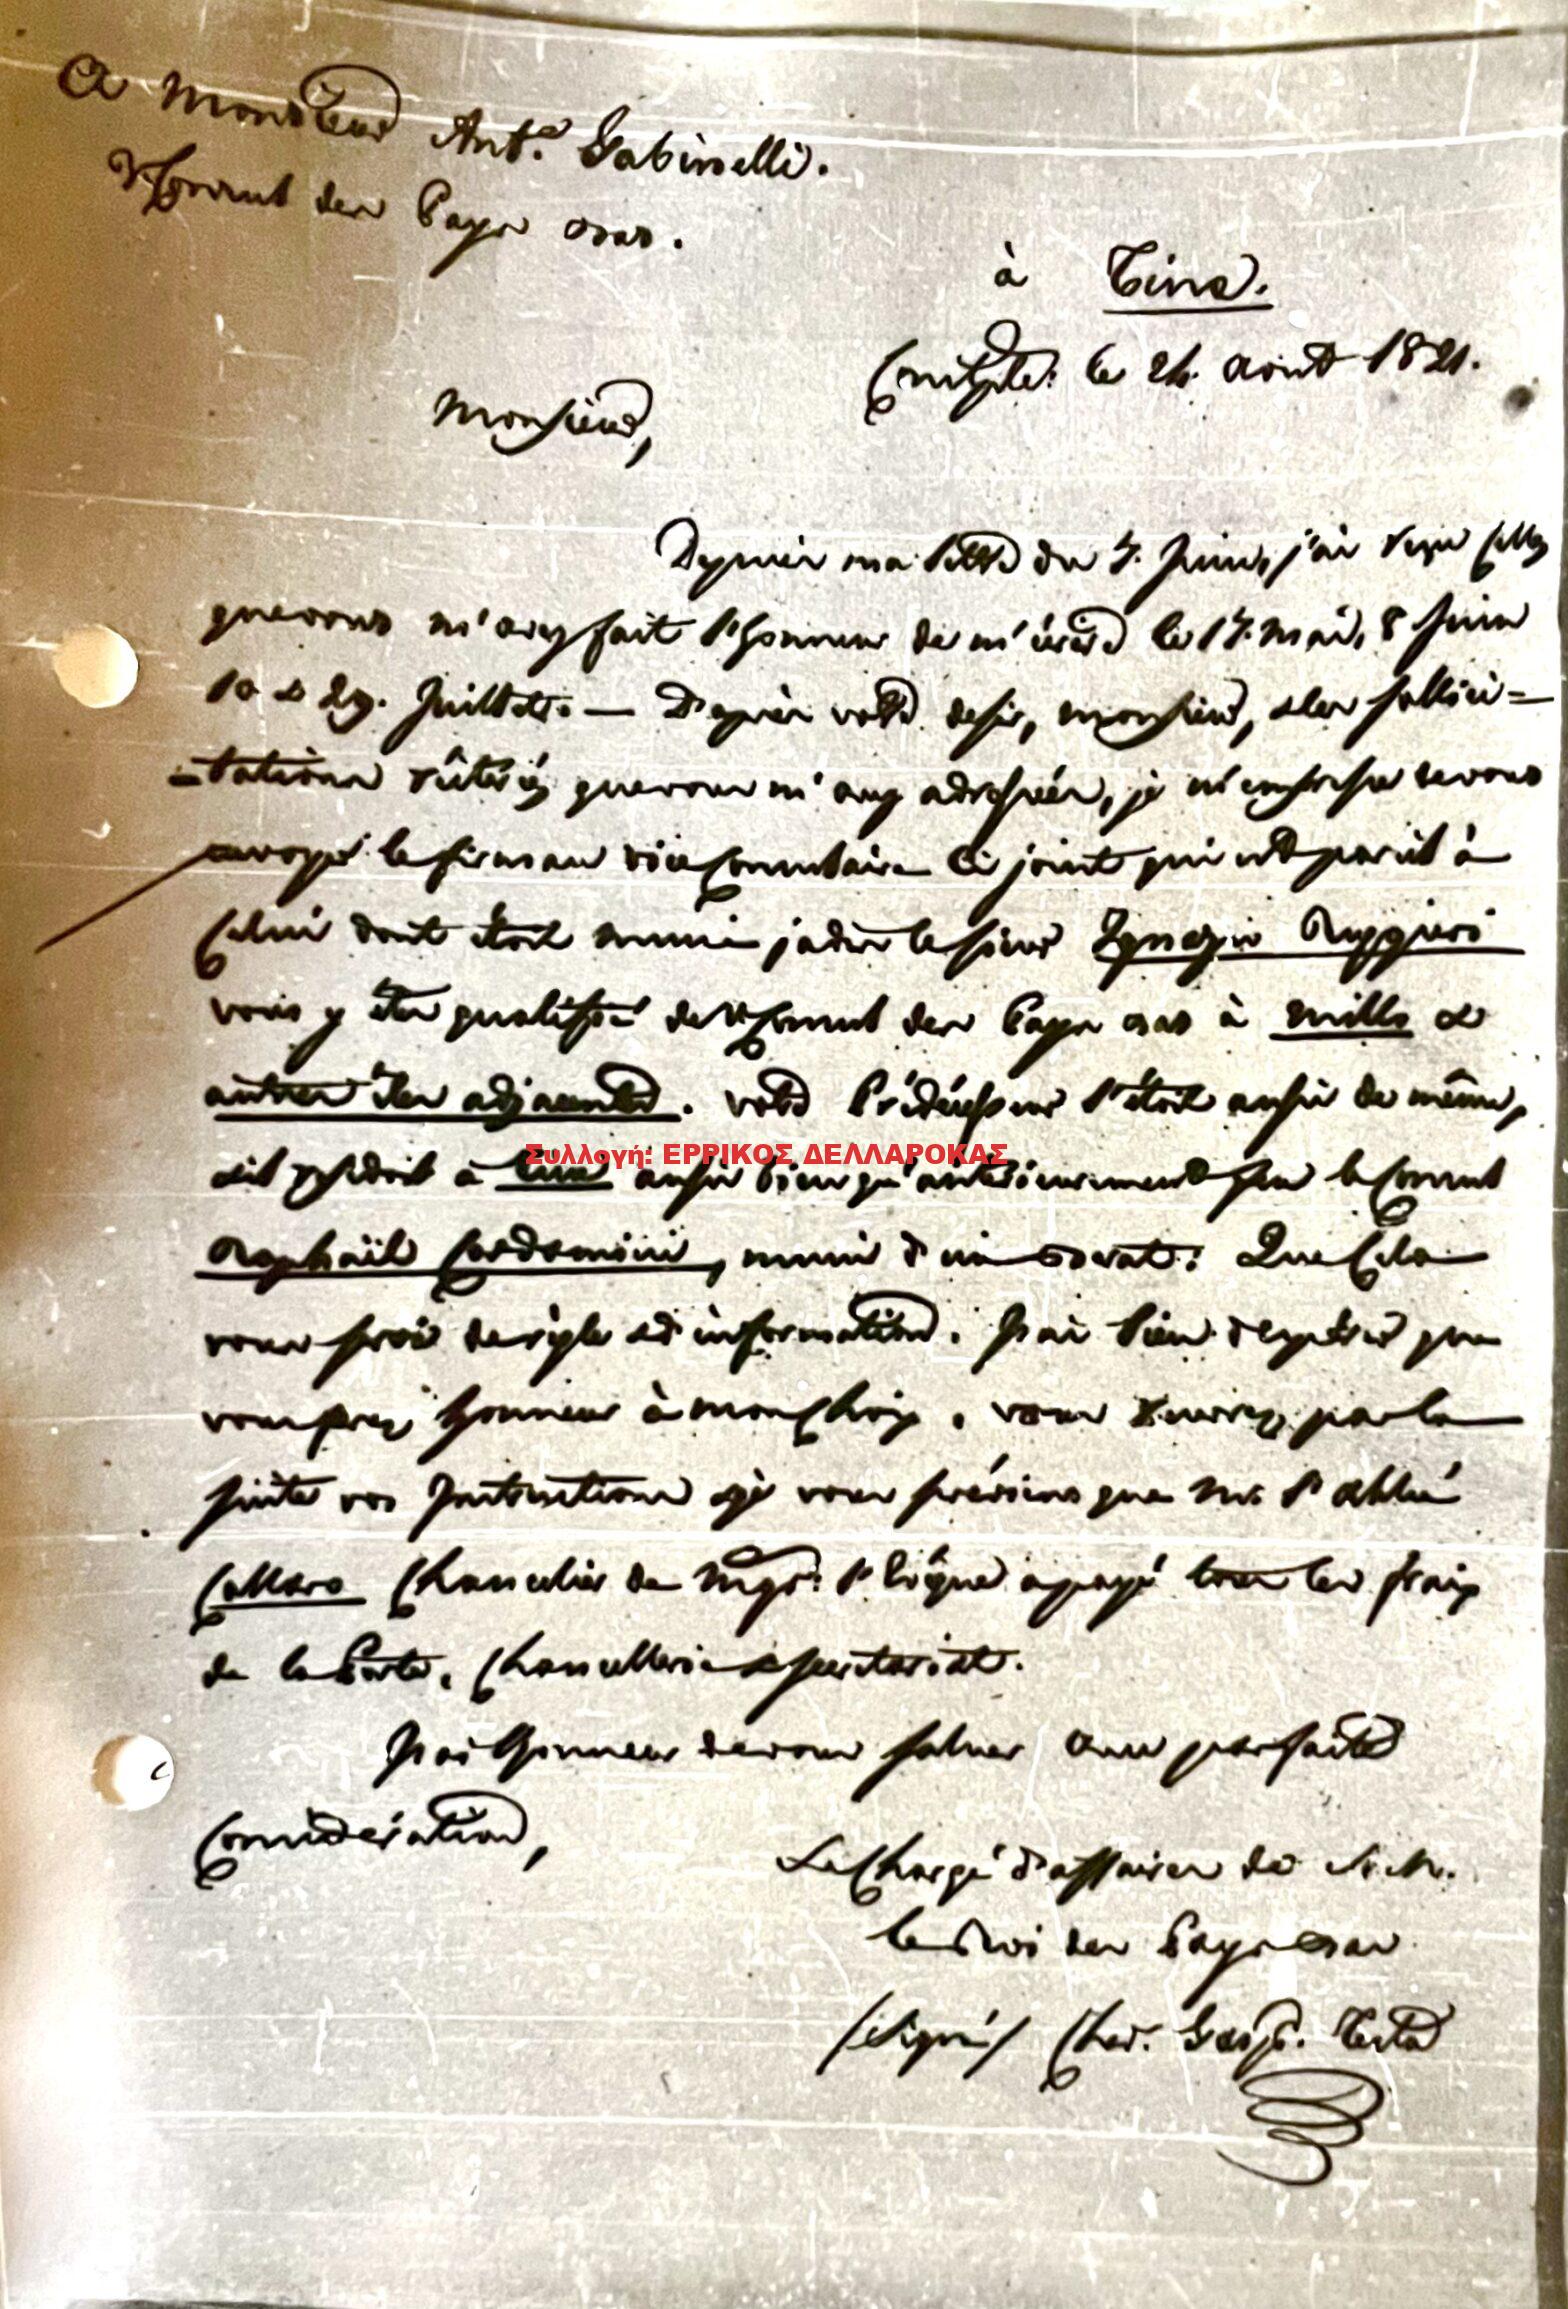 A Monsieur Ant.e Gabinelli.
V.Consul des Pays bas.
à Tine.
Constple: le 24. Aout 1821.
Monsieur,
Depuis ma lettre du 7. Juin, j'ai reçu celles
que vous m'avez fait l'honneur de m'écrire le 17. Mai, 8 Juin
10 & 29. Juillet. — D'après votre desir, Monsieur, & les sollici=
=tations réiterées que vous m'avez adressées, je m'empresse de vous
envoyer le firman vice Consulaire ci joint qui est pareil à
celui dont étoit muni jadis le sieur Ignazio Ruggieri
vous y êtes qualifié de V.Consul des Pays bas à Millo &
autres iles adjacentes. votre Prédécesseur l'étoit aussi de même,
& il residoit à Tine aussi bien qu'antérieurement feu le Consul
Raphaël Cordomini, muni d'un Barat: Que cela
vous serve de règle & d'information. J'ai lieu d'espérer que
vous ferez honneur à mon choix. vous recevrez par la
suite vos Instructions & je vous préviens que Mr. l'abbé
Collaro Chancelier de Mgr: l'Evêque a payé tous les fraix
de la Porte, Chancellerie & secretariat.
J'ai l'honneur de vous saluer avec parfaite
Considération,
Le Chargé d'affaires de S. M.
le Roi des Pays bas
/signé/ Chev. Gasp. Testa
Συλλογή: ΕΡΡΙΚΟΣ ΔΕΛΛΑΡΟΚΑΣ